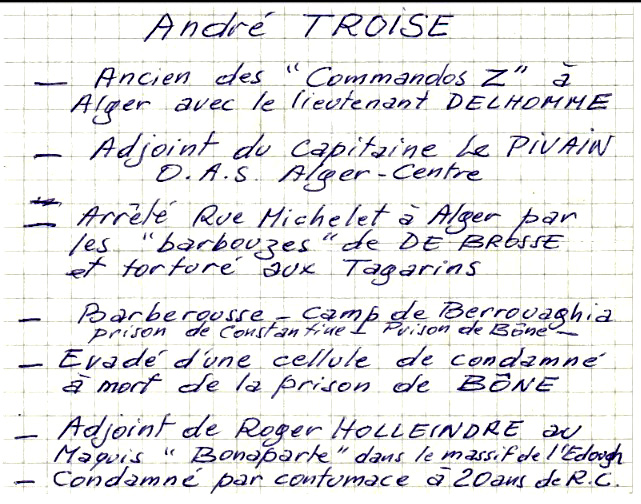 André TROISE
— Ancien des "Commandos Z" à
Alger avec le lieutenant DELHOMME
— Adjoint du Capitaine Le PIVAIN
O.A.S. Alger-Centre
— Arrêté Rue Michelet à Alger par
les "barbouzes" de DE BROSSE
et torturé aux Tagarins
— Barberousse - Camp de Berrouaghia
prison de Constantine - Prison de Bône -
— Evadé d'une cellule de condamné
à mort de la prison de BÔNE
— Adjoint de Roger HOLLEINDRE au
Maquis "Bonaparte" dans le massif de l'Edough
— Condamné par contumace à 20 ans de R.C.